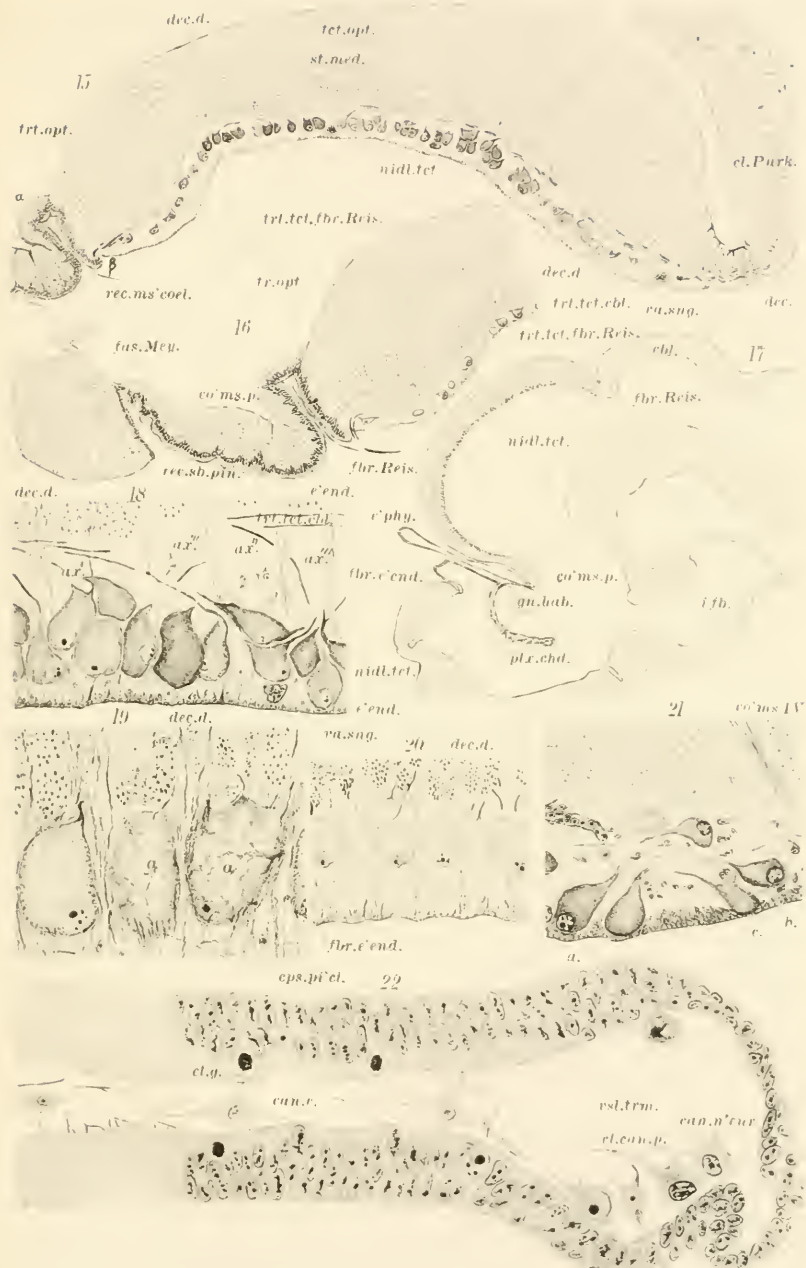 dec.d.
tct.opt.
st.med.
15
trt.opt.
cl.Purk.
nidl.tct
a
trt.tct.fbr.Reis.
β
rec.ms'coel.
tr.opt
dec.d
trt.tct.cbl.
va.sng.
dec.
16
trt.tct.fbr.Reis.
fas.Mey.
cbl.
17
co'ms.p.
fbr.Reis.
nidl.tct.
rec.sb.pin.
fbr.Reis.
dec.d.
18
e'end.
trt.tct.cbl.
e'phy.
ax'.
ax''.
ax''.
ax'''.
fbr.e'end.
co'ms.p.
gn.hab.
i.fb.
nidl.tct.
plx.chd.
e'end.
19
dec.d.
va.sng.
20
dec.d.
21
co'ms IV
a
a
b.
c.
fbr.e'end.
a.
cps.pi'cl.
22
cl.g.
can.c.
vsl.trm.
can.n'eur
cl.can.p.